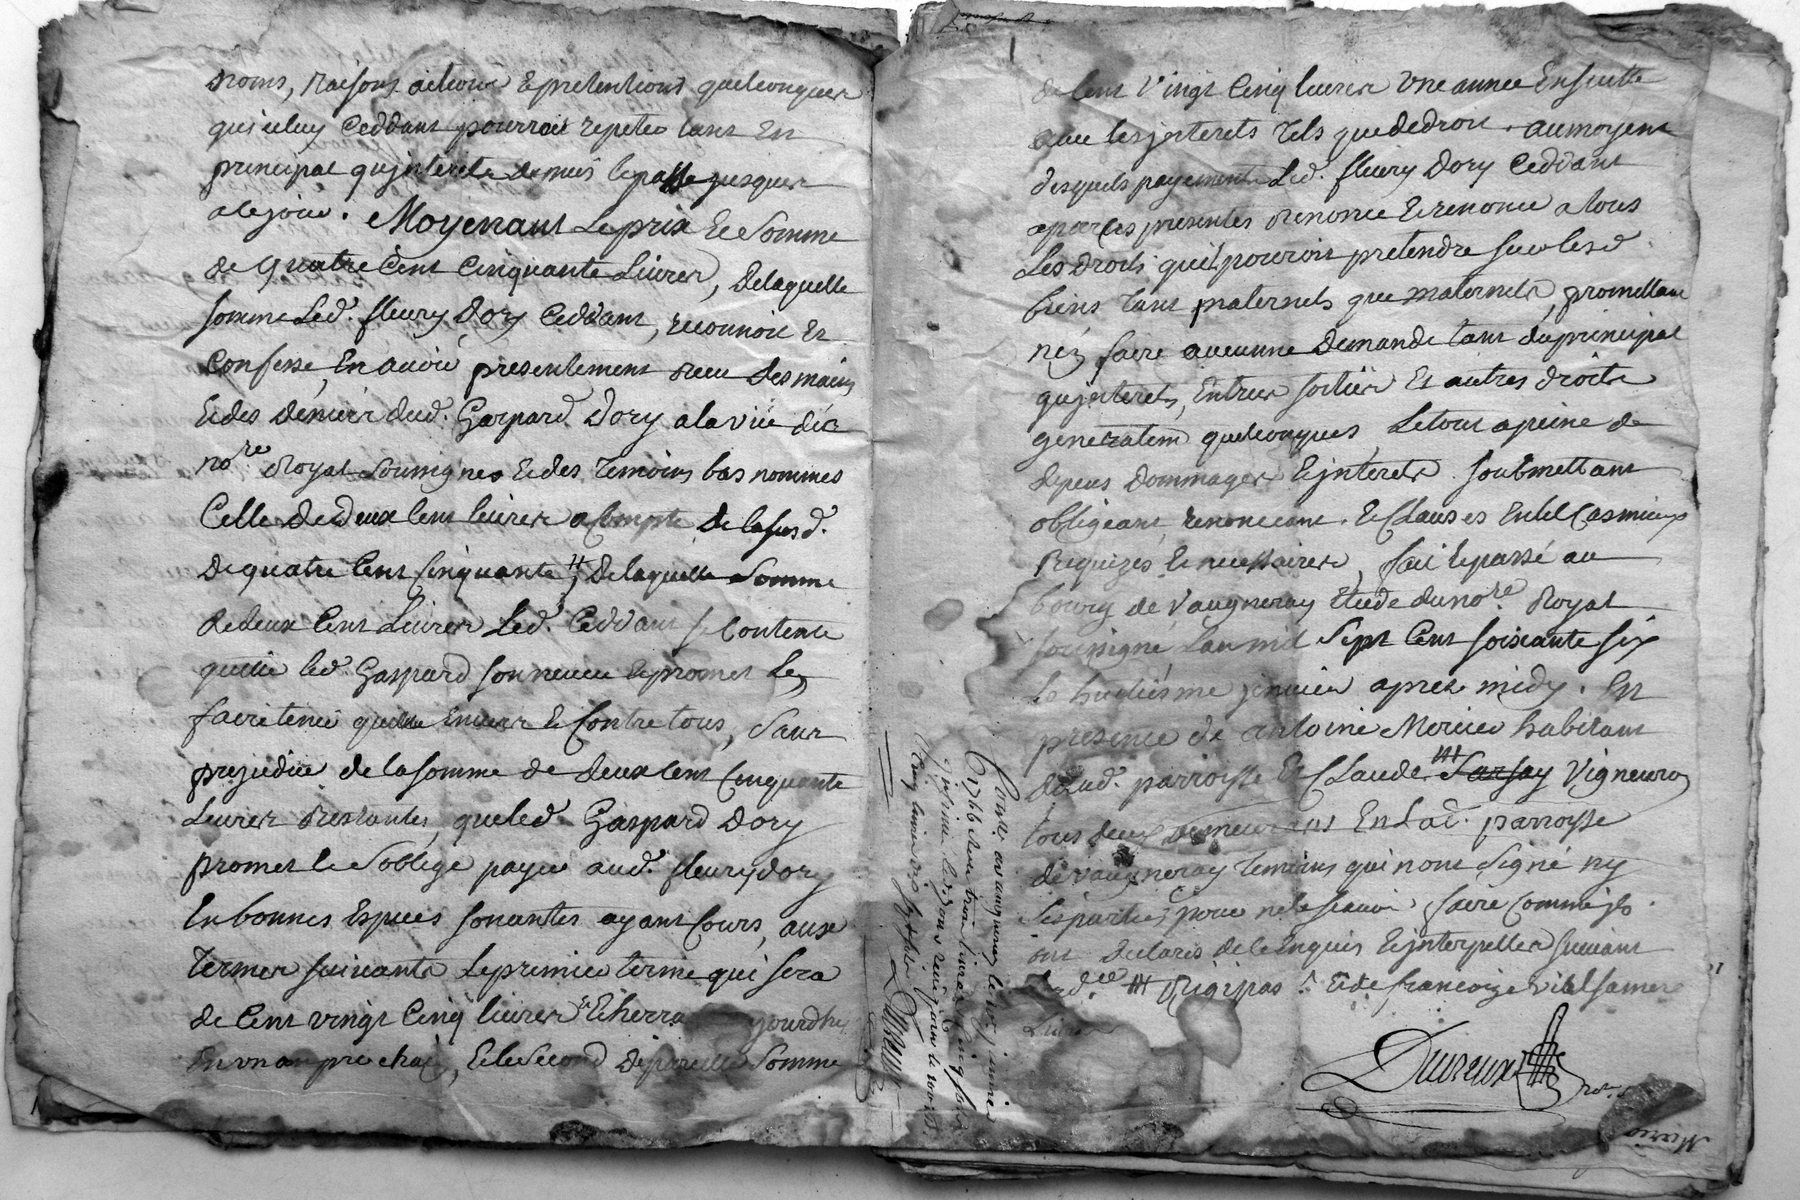 noms, raisons actions & pretentions quelconques
qu'iceluy Ceddant pourroit repeter tant En
principal qu'jnterets depuis le passé jusques
a ce jour. Moyenant Le prix & Somme
de quatre Cent Cinquante Livres, De laquelle
somme Led. fleury Dory Ceddant, reconnoit Et
Confesse En avoir presentement receu des mains
& des déniers dud. Gaspard Dory a la vüe dud.
nore Royal Soussigné & des temoins bas nommés
Celle de deux Cent livres a Compte de la susd.
de quatre Cent Cinquante ₶, de laquelle Somme
de deux Cent Livres Led. Ceddant se Contente
quitte led. Gaspard son neveu & promet Le
faire tenir quitte Envers & Contre tous, Sans
prejudice de la somme de deux Cent Cinquante
Livres restantes, que led. Gaspard Dory
promet & S'oblige payer aud. fleury Dory
En bonnes Especes sonantes ayant Cours, aux
termes suivants Le premier terme qui sera
de Cent vingt Cinq livres Echerra aujourdhuy
En un an prochain, & le Second de pareille Somme
de Cent Vingt Cinq livres Une année Ensuitte
avec les jnterets tels que de droit. au moyent
desquels payements Led. fleury Dory Ceddant
a par ces presentes renoncé & renonce a tous
Les droits qu'il pourroit pretendre sur lesd.
biens tant paternels que maternels, promettant
n'en faire aucunne Demande tant du principal
qu'jnterets, Entrées sorties Et autres droits
generalem quelconques, Le tout a peine de
depens dommages & jnterets soubmettant
obligeant, renonceant. & Clauses En tel Cas mieux
Requizes & necessaires, fait & passé au
bourg de Vaugneray Etude du nore. Royal
soussigné L'an mil Sept Cent soixante six
Le huitiéme janvier apres midy. En
presence de antoine Mercier habitant
dud. parroisse Et Claude Sarsay Vigneron
tous deux demeurants En Lad. parroisse
de vaugneray temoins qui n'ont Signé ny
Les parties pour ne le scavoir faire Comme jls
ont declaré de ce Enquis & jnterpellés suivant
Lord.ce & de francoize vial sa mere
Controllé a vaugneray le janvier
1766 receu trois livres cinq sols
Dureux